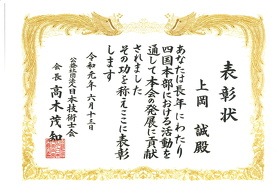 表彰状
上岡 誠殿
あなたは長年にわたり
四国本部における活動を
通して本会の発展に貢献
されました
その功を称えここに表彰
します
令和元年 六月十三日
公益社団法人日本技術士会
会長 高木茂知